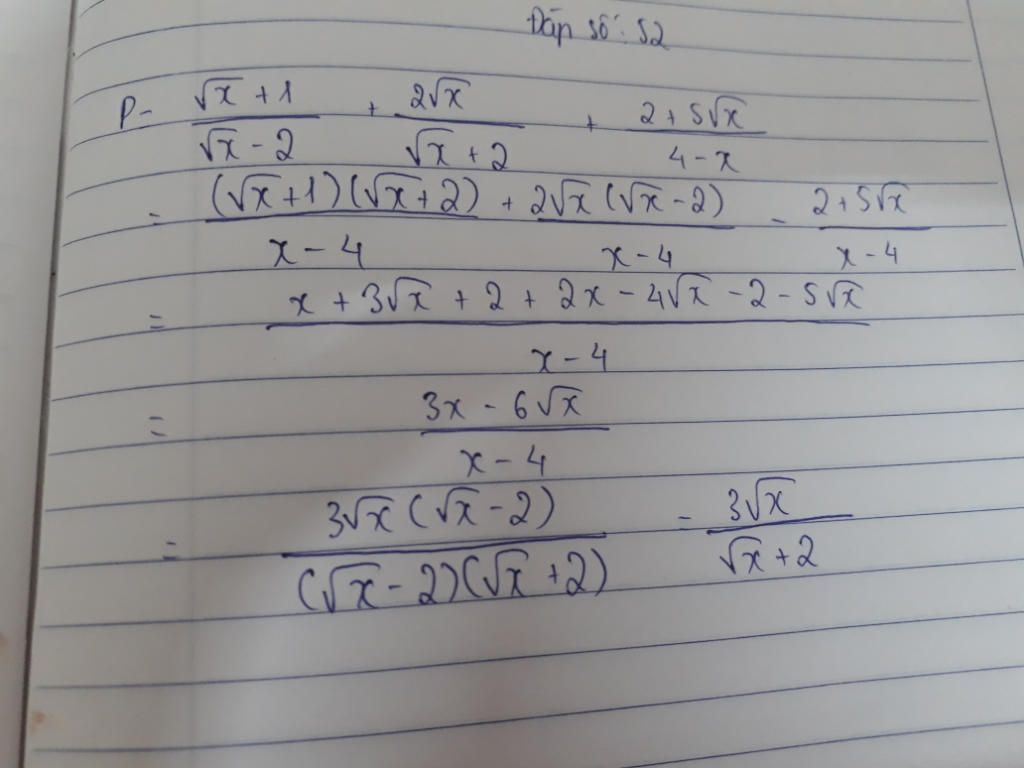 Đáp số: 52
P = \frac{\sqrt{x}+1}{\sqrt{x}-2} + \frac{2\sqrt{x}}{\sqrt{x}+2} + \frac{2+5\sqrt{x}}{4-x}
= \frac{(\sqrt{x}+1)(\sqrt{x}+2)}{x-4} + \frac{2\sqrt{x}(\sqrt{x}-2)}{x-4} - \frac{2+5\sqrt{x}}{x-4}
= \frac{x+3\sqrt{x}+2+2x-4\sqrt{x}-2-5\sqrt{x}}{x-4}
= \frac{3x-6\sqrt{x}}{x-4}
= \frac{3\sqrt{x}(\sqrt{x}-2)}{(\sqrt{x}-2)(\sqrt{x}+2)} = \frac{3\sqrt{x}}{\sqrt{x}+2}